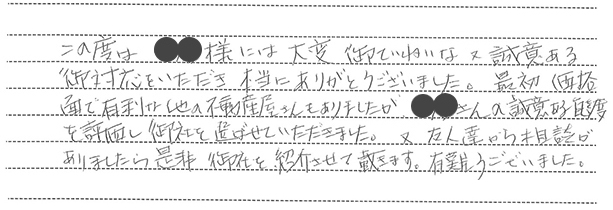 この度は ●●様には 大変 御ていねいな 又 誠意ある
御対応をいただき 本当にありがとうございました。 最初 価格
面で有利な他の不動産屋さんもありましたが ●●さんの誠意的態度
を評価し 御社を選ばせていただきました。 又 友人達から相談が
ありましたら是非 御社を紹介させて戴きます。有難うございました。